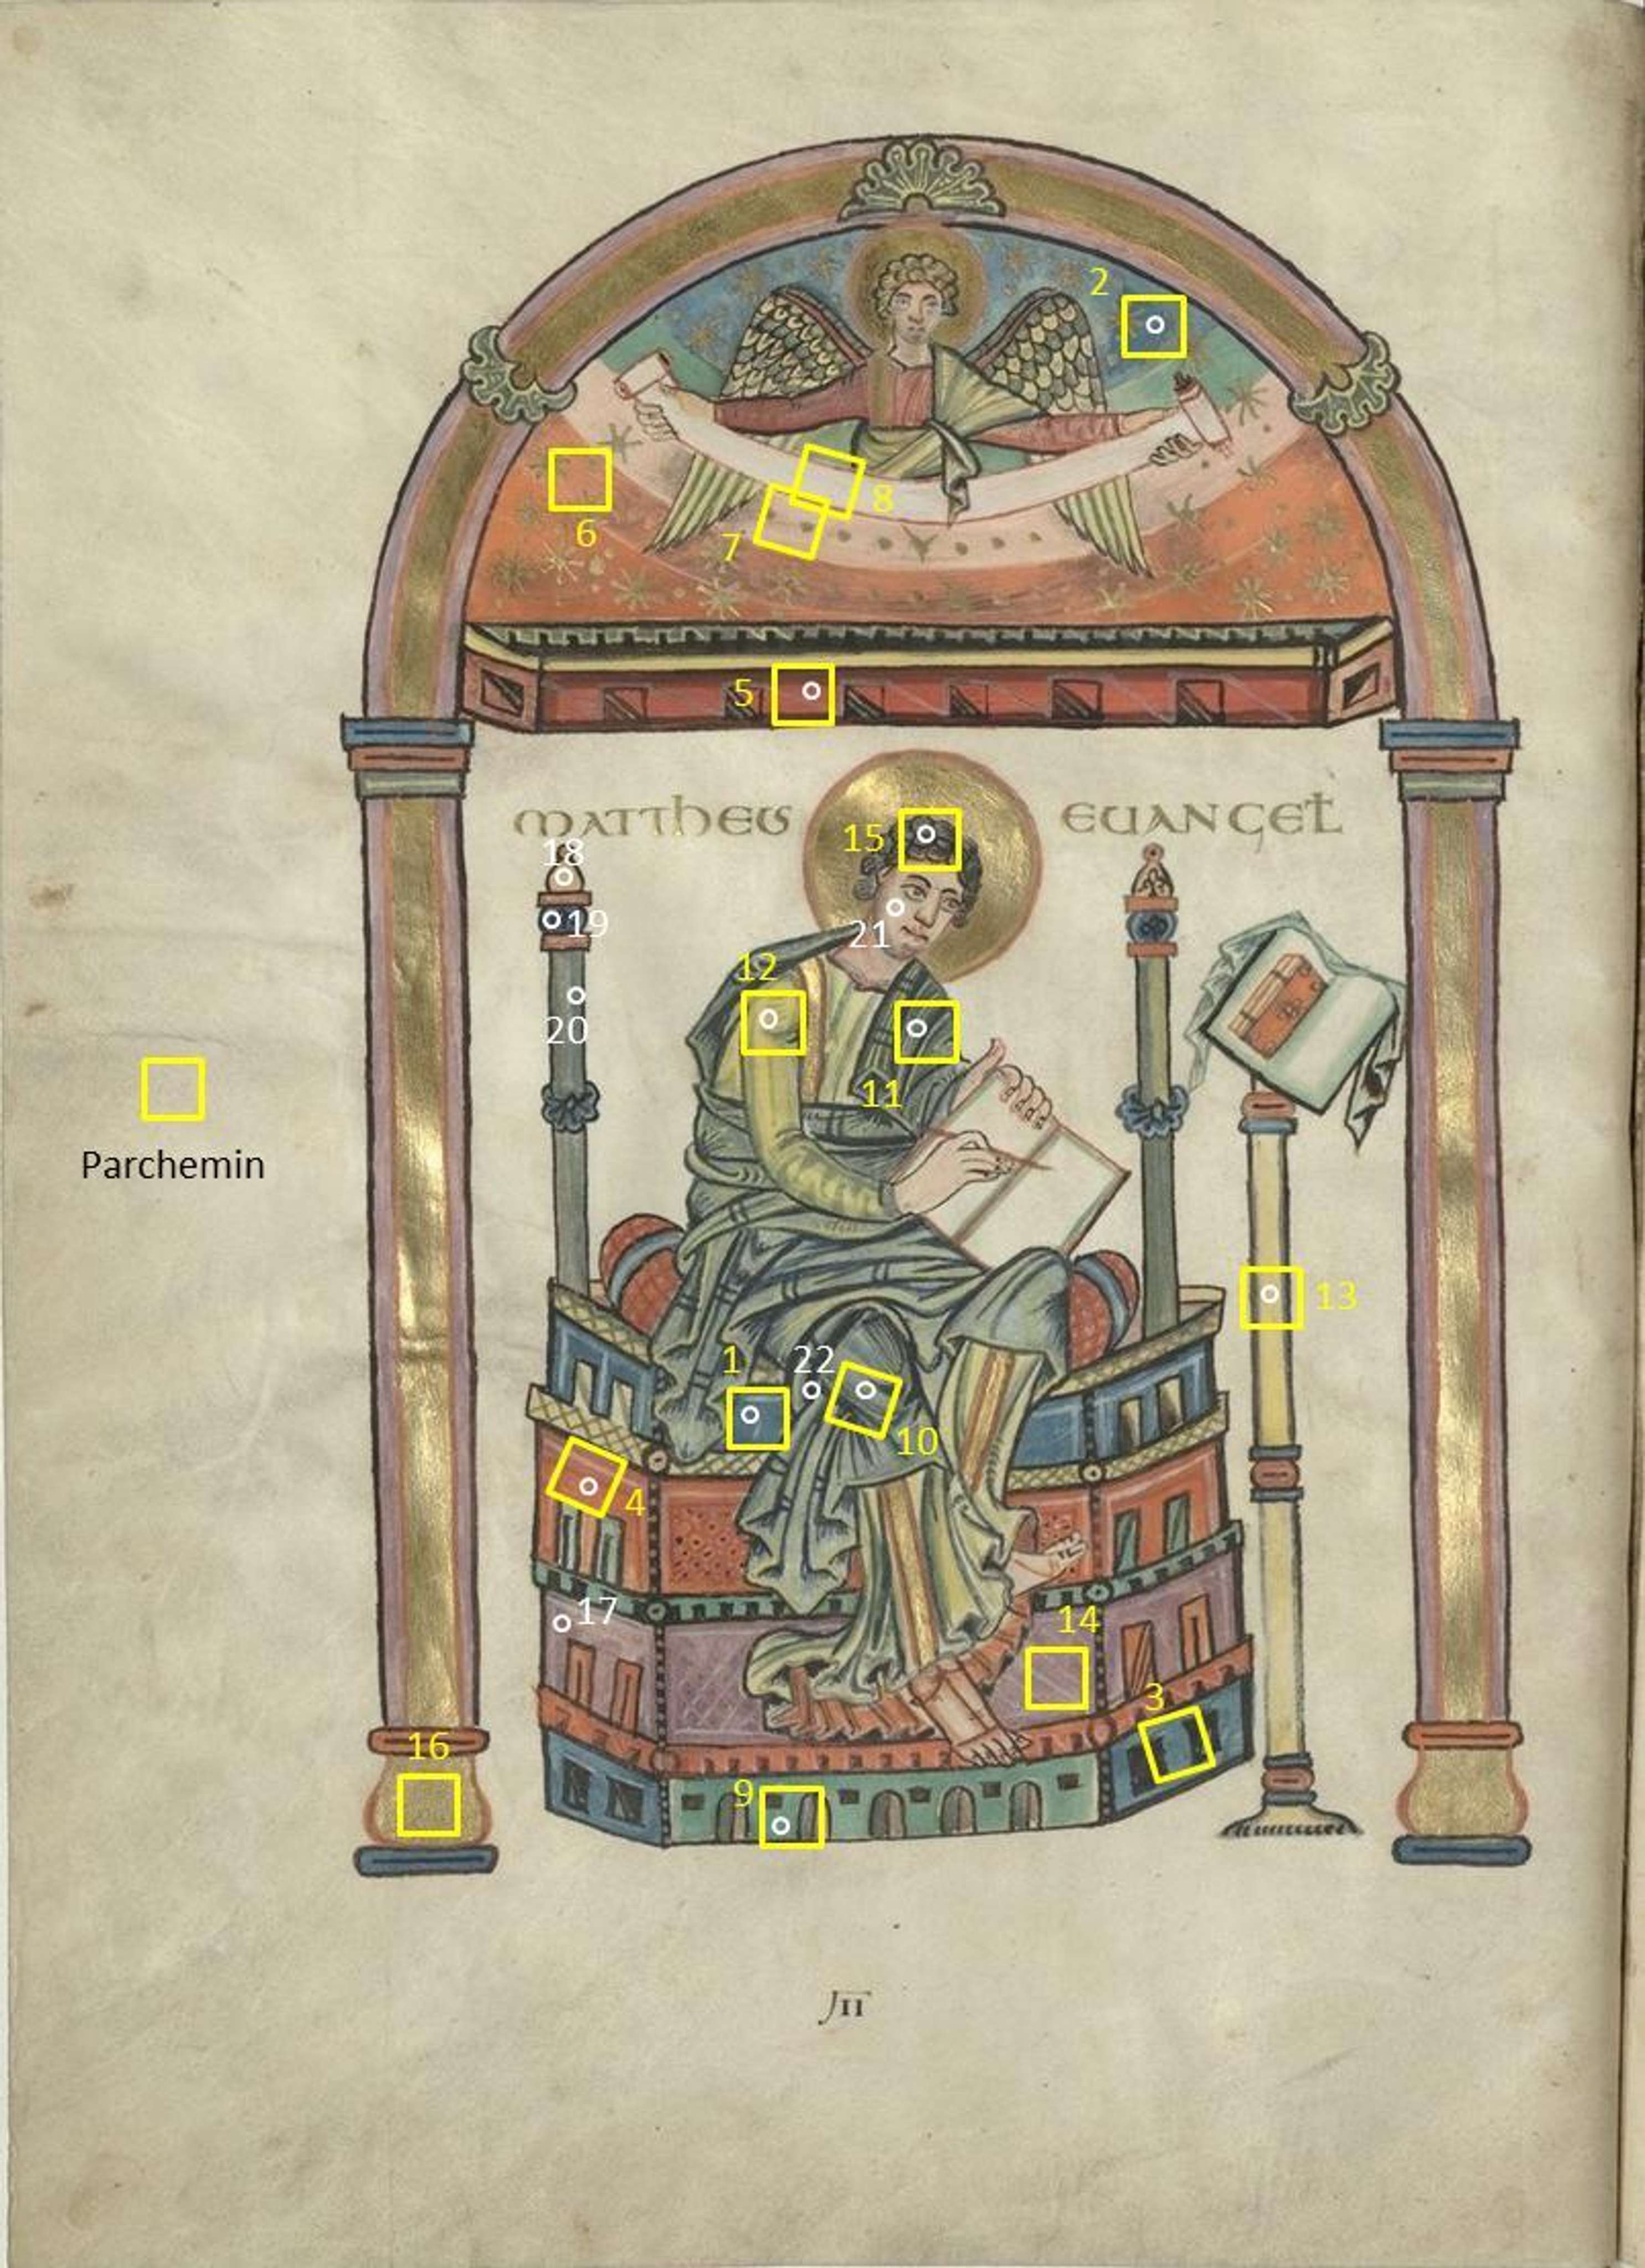 2
6
8
7
5
MATTHEUS EUANGEL
15
18
19
21
12
20
11
Parchemin
13
1
22
10
4
17
14
3
16
9
III